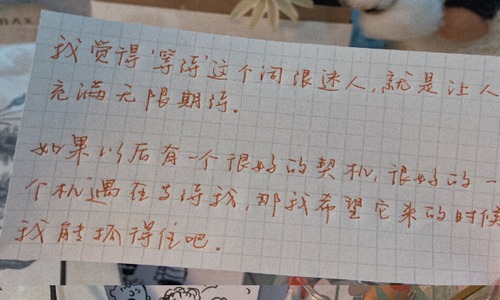 我觉得‘等待’这个词很迷人,就是让人
充满无限期待。
如果以后有一个很好的契机,很好的一
个机遇在等待我,那我希望它来的时候
我能抓得住吧。